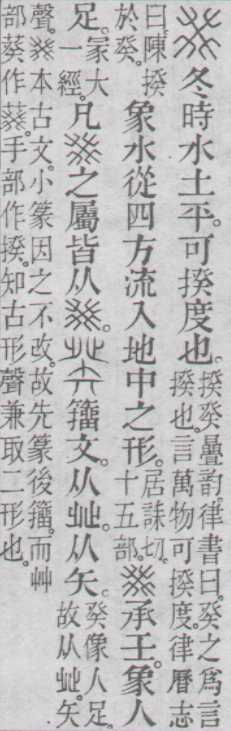 癸冬時水土平。可揆度也。揆癸曡韵。律書曰。癸之爲言揆也。言萬物可揆度。律曆志
曰。陳揆於癸。象水從四方流入地中之形。居誄切。十五部。癸承壬。象人
足。冡大一經。凡癸之屬皆从癸。籒文。从癶。从矢。癸像人足。故从癶。矢
聲。癸本古文。小篆因之不改。故先篆後籒。而艸部葵作。手部作揆。知古形聲兼取二形也。